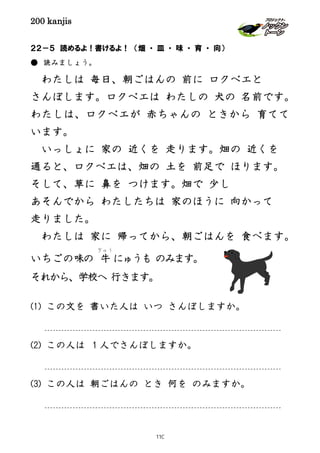 200 kanjis
プロジェクト・
ノックオン
トーイン
22-5 読めるよ！書けるよ！（畑・皿・味・育・向）
● 読みましょう。
わたしは 毎日、朝ごはんの 前に ロクベエと
さんぽします。ロクベエは わたしの 犬の 名前です。
わたしは、ロクベエが 赤ちゃんの ときから 育てて
います。
いっしょに 家の 近くを 走ります。畑の 近くを
通ると、ロクベエは、畑の 土を 前足で ほります。
そして、草に 鼻を つけます。畑で 少し
あそんでから わたしたちは 家のほうに 向かって
走りました。
わたしは 家に 帰ってから、朝ごはんを 食べます。
ぎゅう
いちごの味の 牛にゅうも のみます。
それから、学校へ 行きます。
(1) この文を 書いた人は いつ さんぽしますか。
(2) この人は 1人でさんぽしますか。
(3) この人は 朝ごはんの とき 何を のみますか。